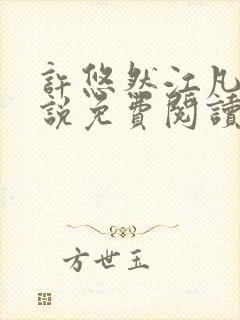 許悠然江凡
説免費閱讀
方世玉